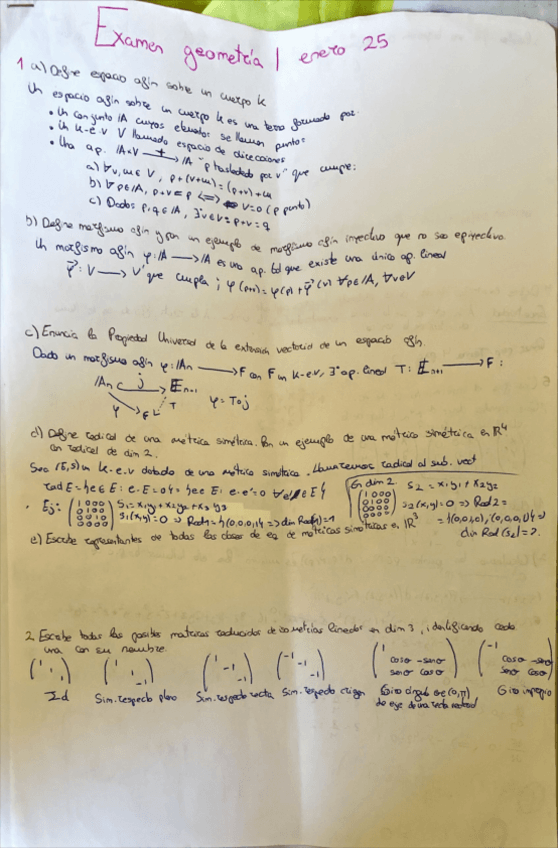 Examen geometría I enero 25
1 a) Define espacio afín sobre un cuerpo k
Un espacio afín sobre un cuerpo k es una terna formada por:
• Un conjunto A cuyos elementos se llaman puntos
• Un k-e.v V llamado espacio de direcciones
• Una ap. A×V →+ A "p trasladado por v" que cumple:
a) ∀v,u∈V, p+(v+u)=(p+v)+u
b) ∀p∈A, p+v=p ⟺ v=0 (p punto)
c) Dados p,q∈A, ∃ v∈V: p+v=q
b) Define morfismo afín y pon un ejemplo de morfismo afín inyectivo que no sea epiyectivo.
Un morfismo afín φ: A → A es una ap. tal que existe una única ap. lineal
φ⃗: V → V' que cumpla; φ(p+v)=φ(p)+φ⃗(v) ∀p∈A, ∀v∈V
c) Enuncia la Propiedad Universal de la extensión vectorial de un espacio afín.
Dado un morfismo afín φ: An → F con F un k-e.v, ∃ ap. lineal T: En+1 → F:
An j En+1
φ F T φ = T∘j
d) Define radical de una métrica simétrica. Pon un ejemplo de una métrica simétrica en R⁴
con radical de dim 2.
Sea (E,S) un k-e.v dotado de una métrica simétrica. Llamaremos radical al sub. vect
rad E = {e∈E: e·E=0} = {e∈E: e·e'=0 ∀e'∈E}
En dim 2 S₂ = x₁y₁ + x₂y₂
Ej: (1000 0100 0010 0000) S₁=x₁y₁+x₂y₂+x₃y₃
S₁(x,y)=0 ⇒ Rad₁={(0,0,0,1)} ⇒ dim Rad(S₁)=1
(1000 0100 0000 0000) S₂(x,y)=0 ⇒ Rad₂=
={(0,0,1,0),(0,0,0,1)} ⇒
dim Rad(S₂)=2
e) Escribe representantes de todas las clases de eq de métricas simétricas en R³
2. Escribe todas las posibles matrices reducidas de isometrías lineales en dim 3, identificando cada
una con su nombre.
(1 1 1) (1 1 -1) (1 -1 -1) (-1 -1 -1) (1 cosα -senα senα cosα) (-1 cosα -senα senα cosα)
Id Sim. respecto plano Sim. respecto recta Sim. respecto origen Giro ángulo α∈(0,π) Giro impropio
de eje de una recta vectorial